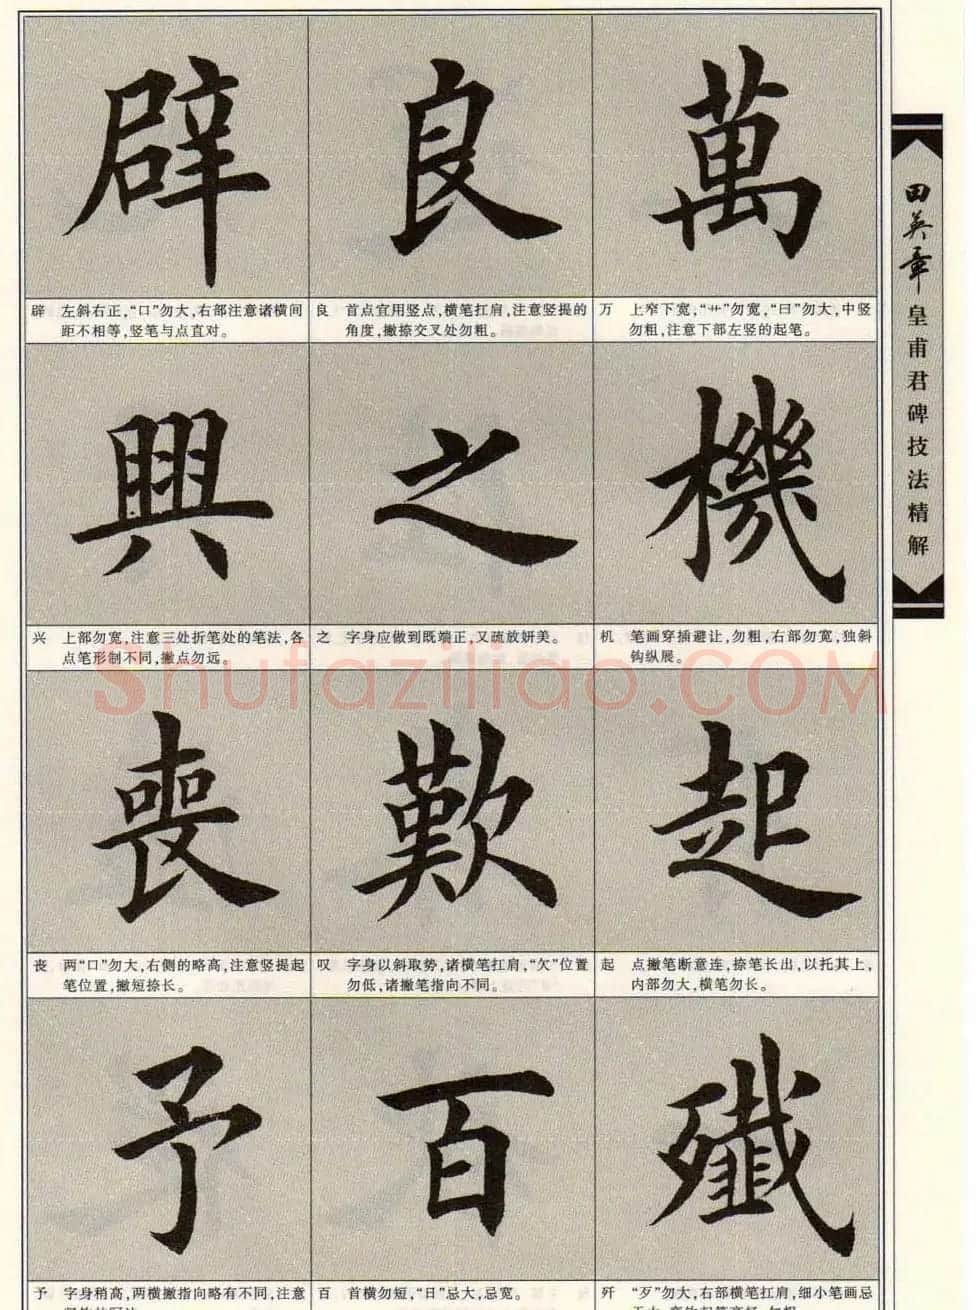 辟
良
萬
辟 左斜右正,“口”勿大,右部注意诸横间
距不相等,竖笔与点直对。
良 首点宜用竖点,横笔扛肩,注意竖提的
角度,撇捺交叉处勿粗。
万 上窄下宽,“艹”勿宽,“曰”勿大,中竖
勿粗,注意下部左竖的起笔。
興
之
機
兴 上部勿宽,注意三处折笔处的笔法,各
点笔形制不同,撇点勿远。
之 字身应做到既端正,又疏放妍美。
机 笔画穿插避让,勿粗,右部勿宽,独斜
钩纵展。
喪
歎
起
丧 两“口”勿大,右侧的略高,注意竖提起
笔位置,撇短捺长。
叹 字身以斜取势,诸横笔扛肩,“欠”位置
勿低,诸撇笔指向不同。
起 点撇笔断意连,捺笔长出,以托其上,
内部勿大,横笔勿长。
予
百
殲
予 字身稍高,两横撇指向略有不同,注意
百 首横勿短,“日”忌大,忌宽。
歼 “歹”勿大,右部横笔扛肩,细小笔画忌
田英章
皇甫君碑技法精解
Shufaziliao.COM